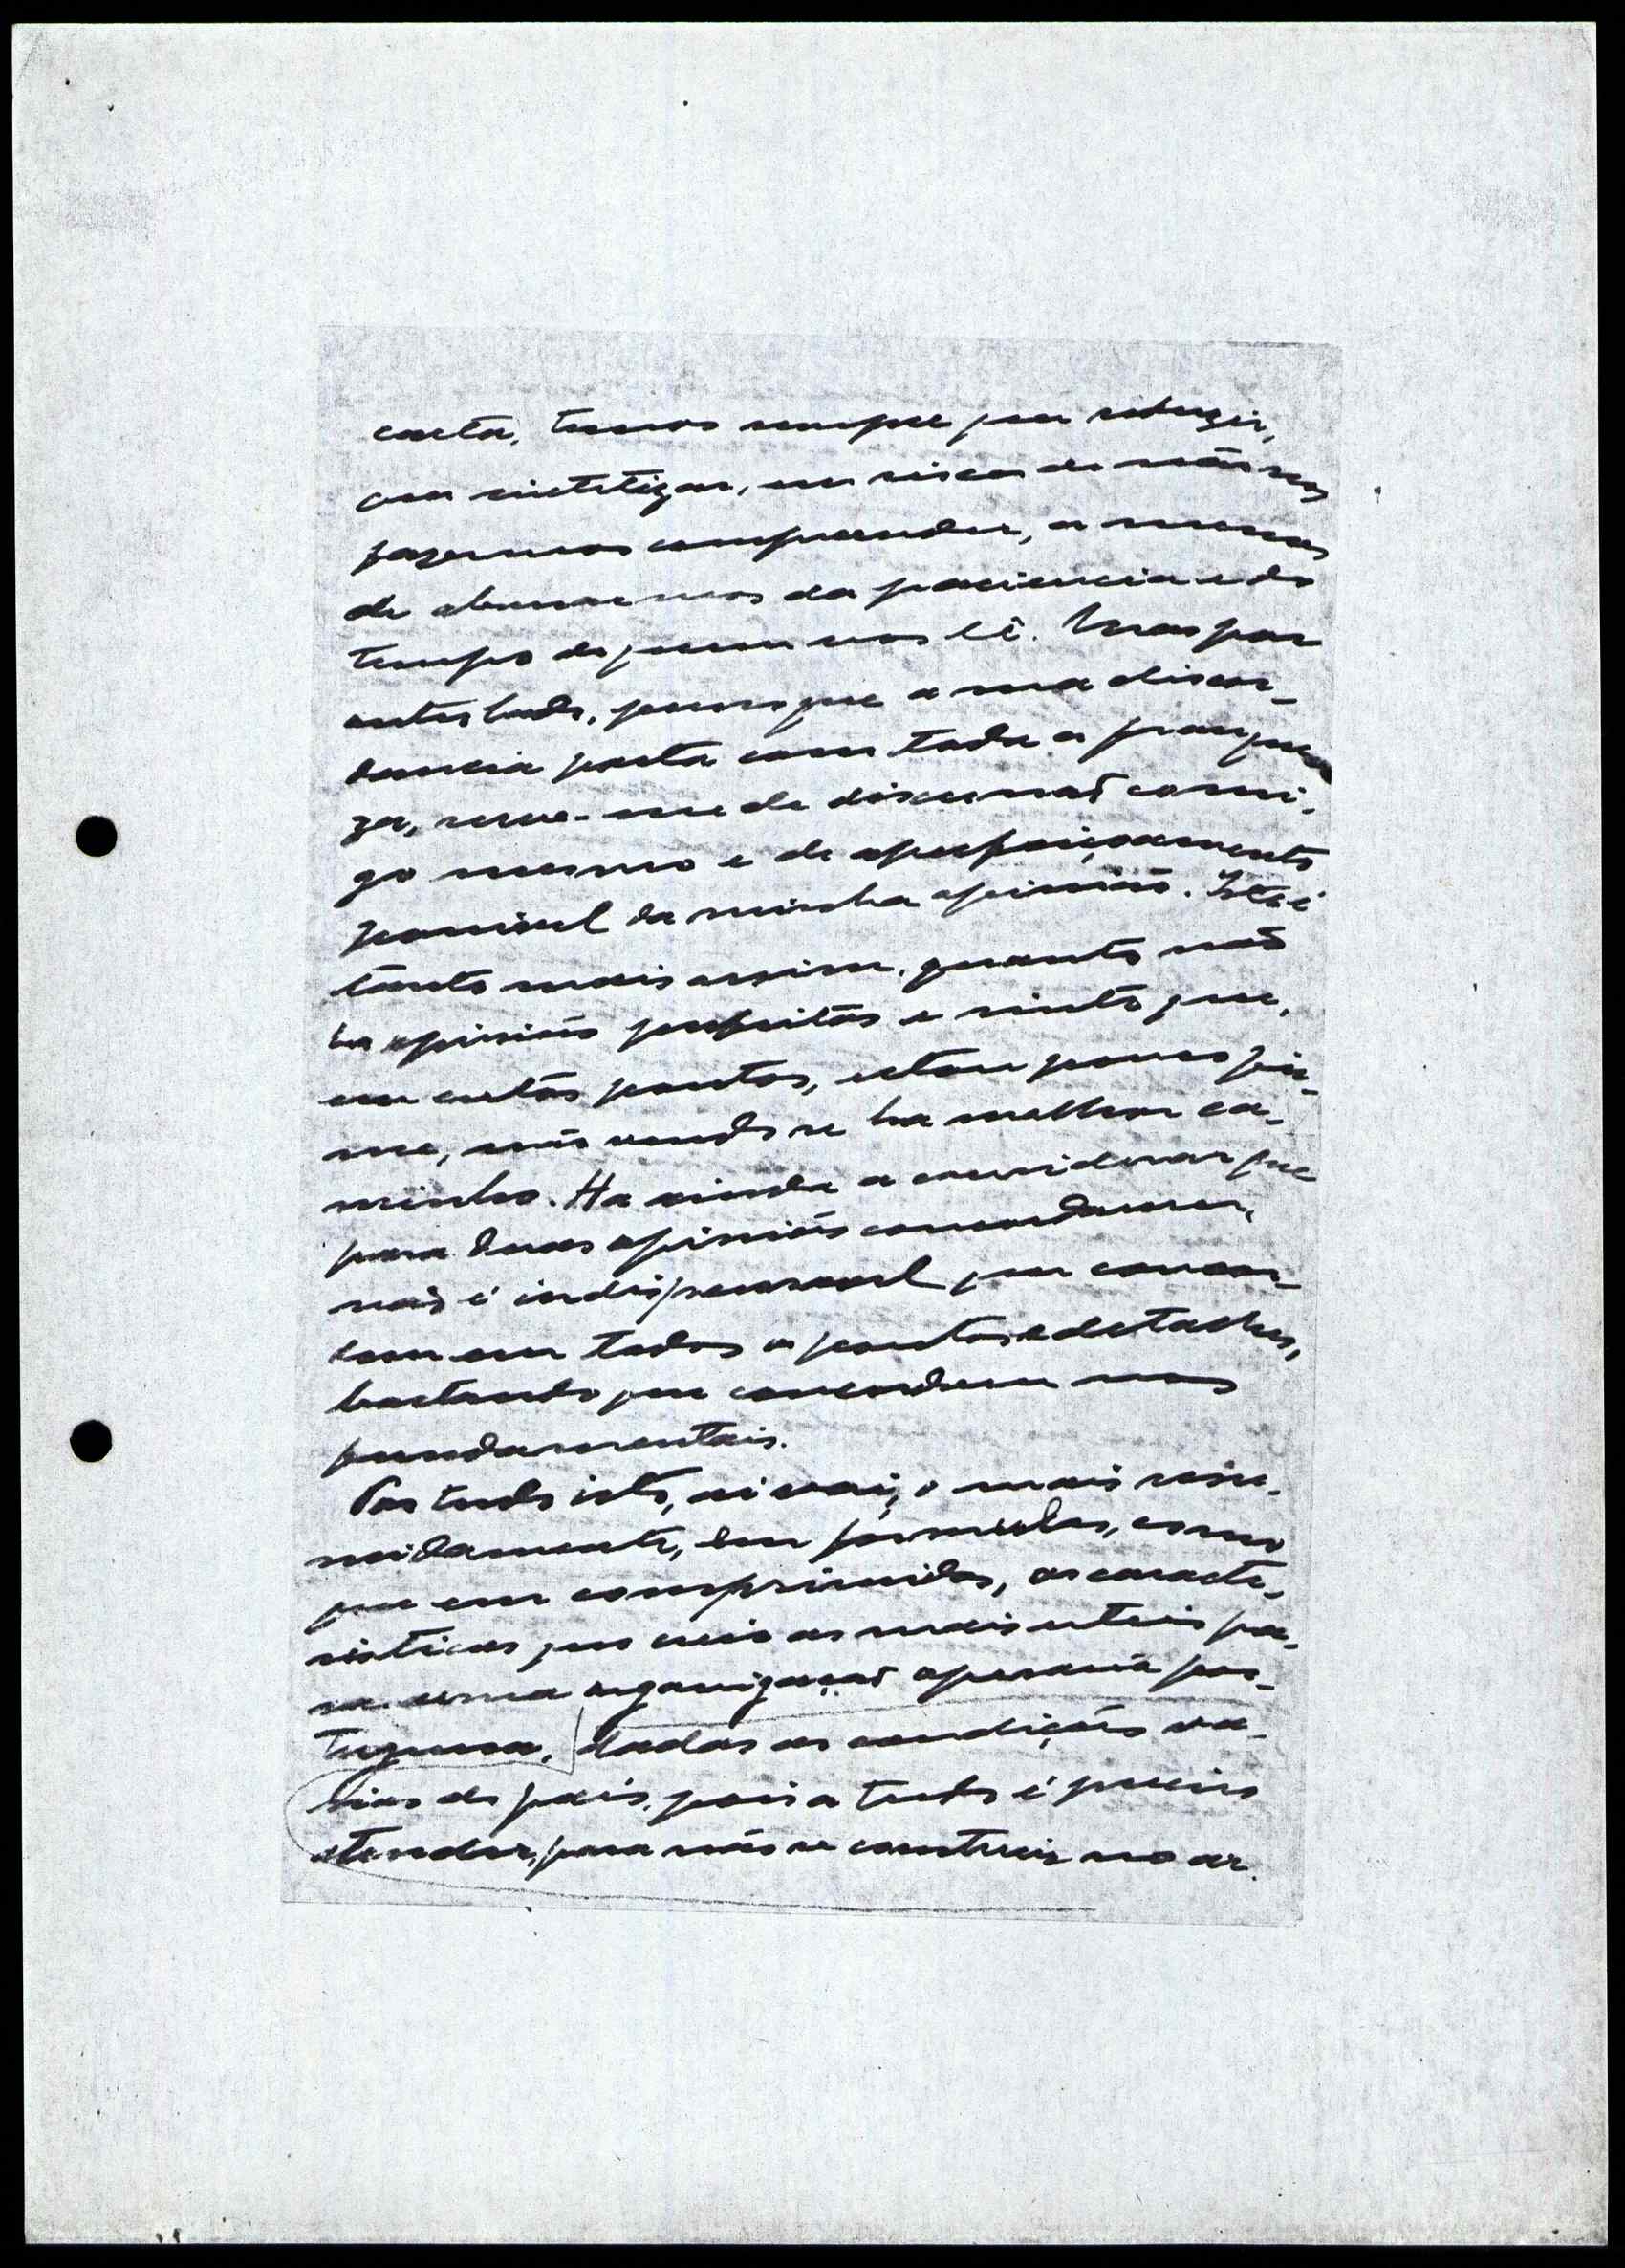 carta, temos sempre que reduzir,
que sintetizar, em risco de não nos
fazermos compreender, a menos
de abusarmos da paciencia e do
tempo de quem nos lê. Mas por
outro lado, penso que a sua discor-
dancia posta com toda a franque-
za, serve-me de discussão comi-
go mesmo e de aperfeiçoamento
possivel da minha opinião. Isto é
tanto mais assim, quanto não
ha opiniões perfeitas e sinto que,
em certos pontos, estou pouco fir-
me, não vendo se ha melhor ca-
minho. Ha ainda a considerar que
para duas opiniões concordarem,
não é indispensavel que concor-
dem em todos os pontos e detalhes,
bastando que concordem nos
fundamentais.
Por tudo isto, ai vai, o mais resu-
midamente, em formulas, como
que em comprimidos, as caracte-
risticas que creio as mais uteis pa-
ra uma organização operaria por-
tuguesa, dadas as condições va-
rias do país, pois a tudo é preciso
atender, para não se construir no ar.